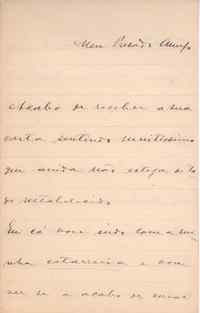 Meu Presado Amigo
Acabo de receber a sua
carta sentindo muitissimo
que ainda não esteja de to
do restabelecido.
Eu cá vou indo com a mi
nha e com
ver se a acabo de